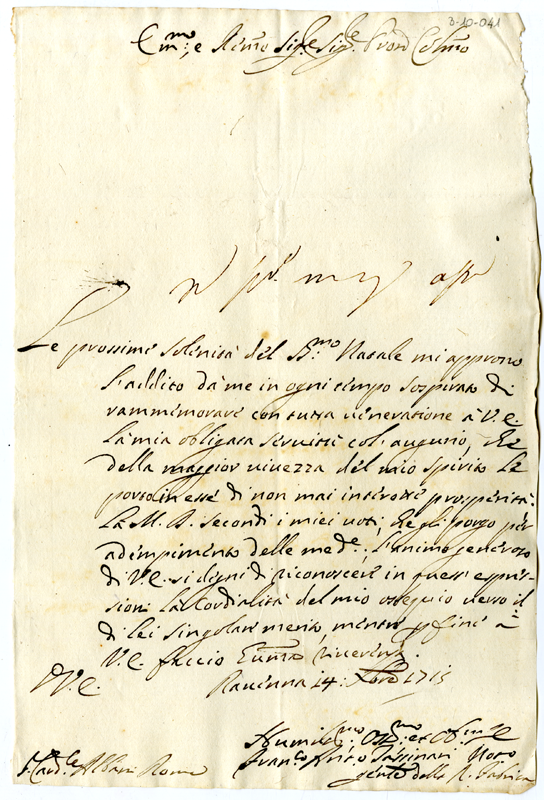 3-10-041
Em.mo; e Reu̅mo Sig.re Sig.re Pron̅ Col̅mo
Le prossime solenità del S.mo Natale mi aprono
l'addito da me in ogni tempo sospirato di
rammemorare con tutta ueneratione à V.E.
la mia obligata seruitù col' augurio, che
della maggior uiuezza del mio spirito le
porto in esse di non mai interotte prosperità.
La M. D. secondi i miei uoti, che gli porgo per
adempimento delle med.e, e l'animo generoso
di V.E. si degni di riconoscere in quest' espres-
sioni la cordialità del mio ossequio uerso il
di lei singolar merito, mentre p fine à
V.E. faccio Hum̅a riuerenza.
D V.E. Rauenna 14: Xbre 1715
Humil.mo Deu.mo et Obl.mo Se
Fran.co Ant.o Passinari
S. Card.le Albani Roma
della R. Fabrica